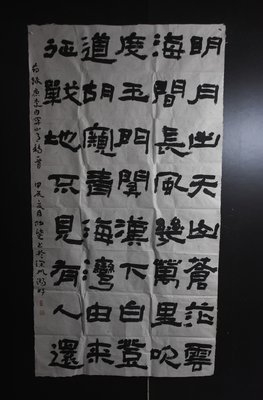 明月出天山蒼茫雲
海間長風幾萬里吹
度玉門關漢下白登
道胡窺青海灣由來
征戰地不見有人還
李白
甲辰夏月